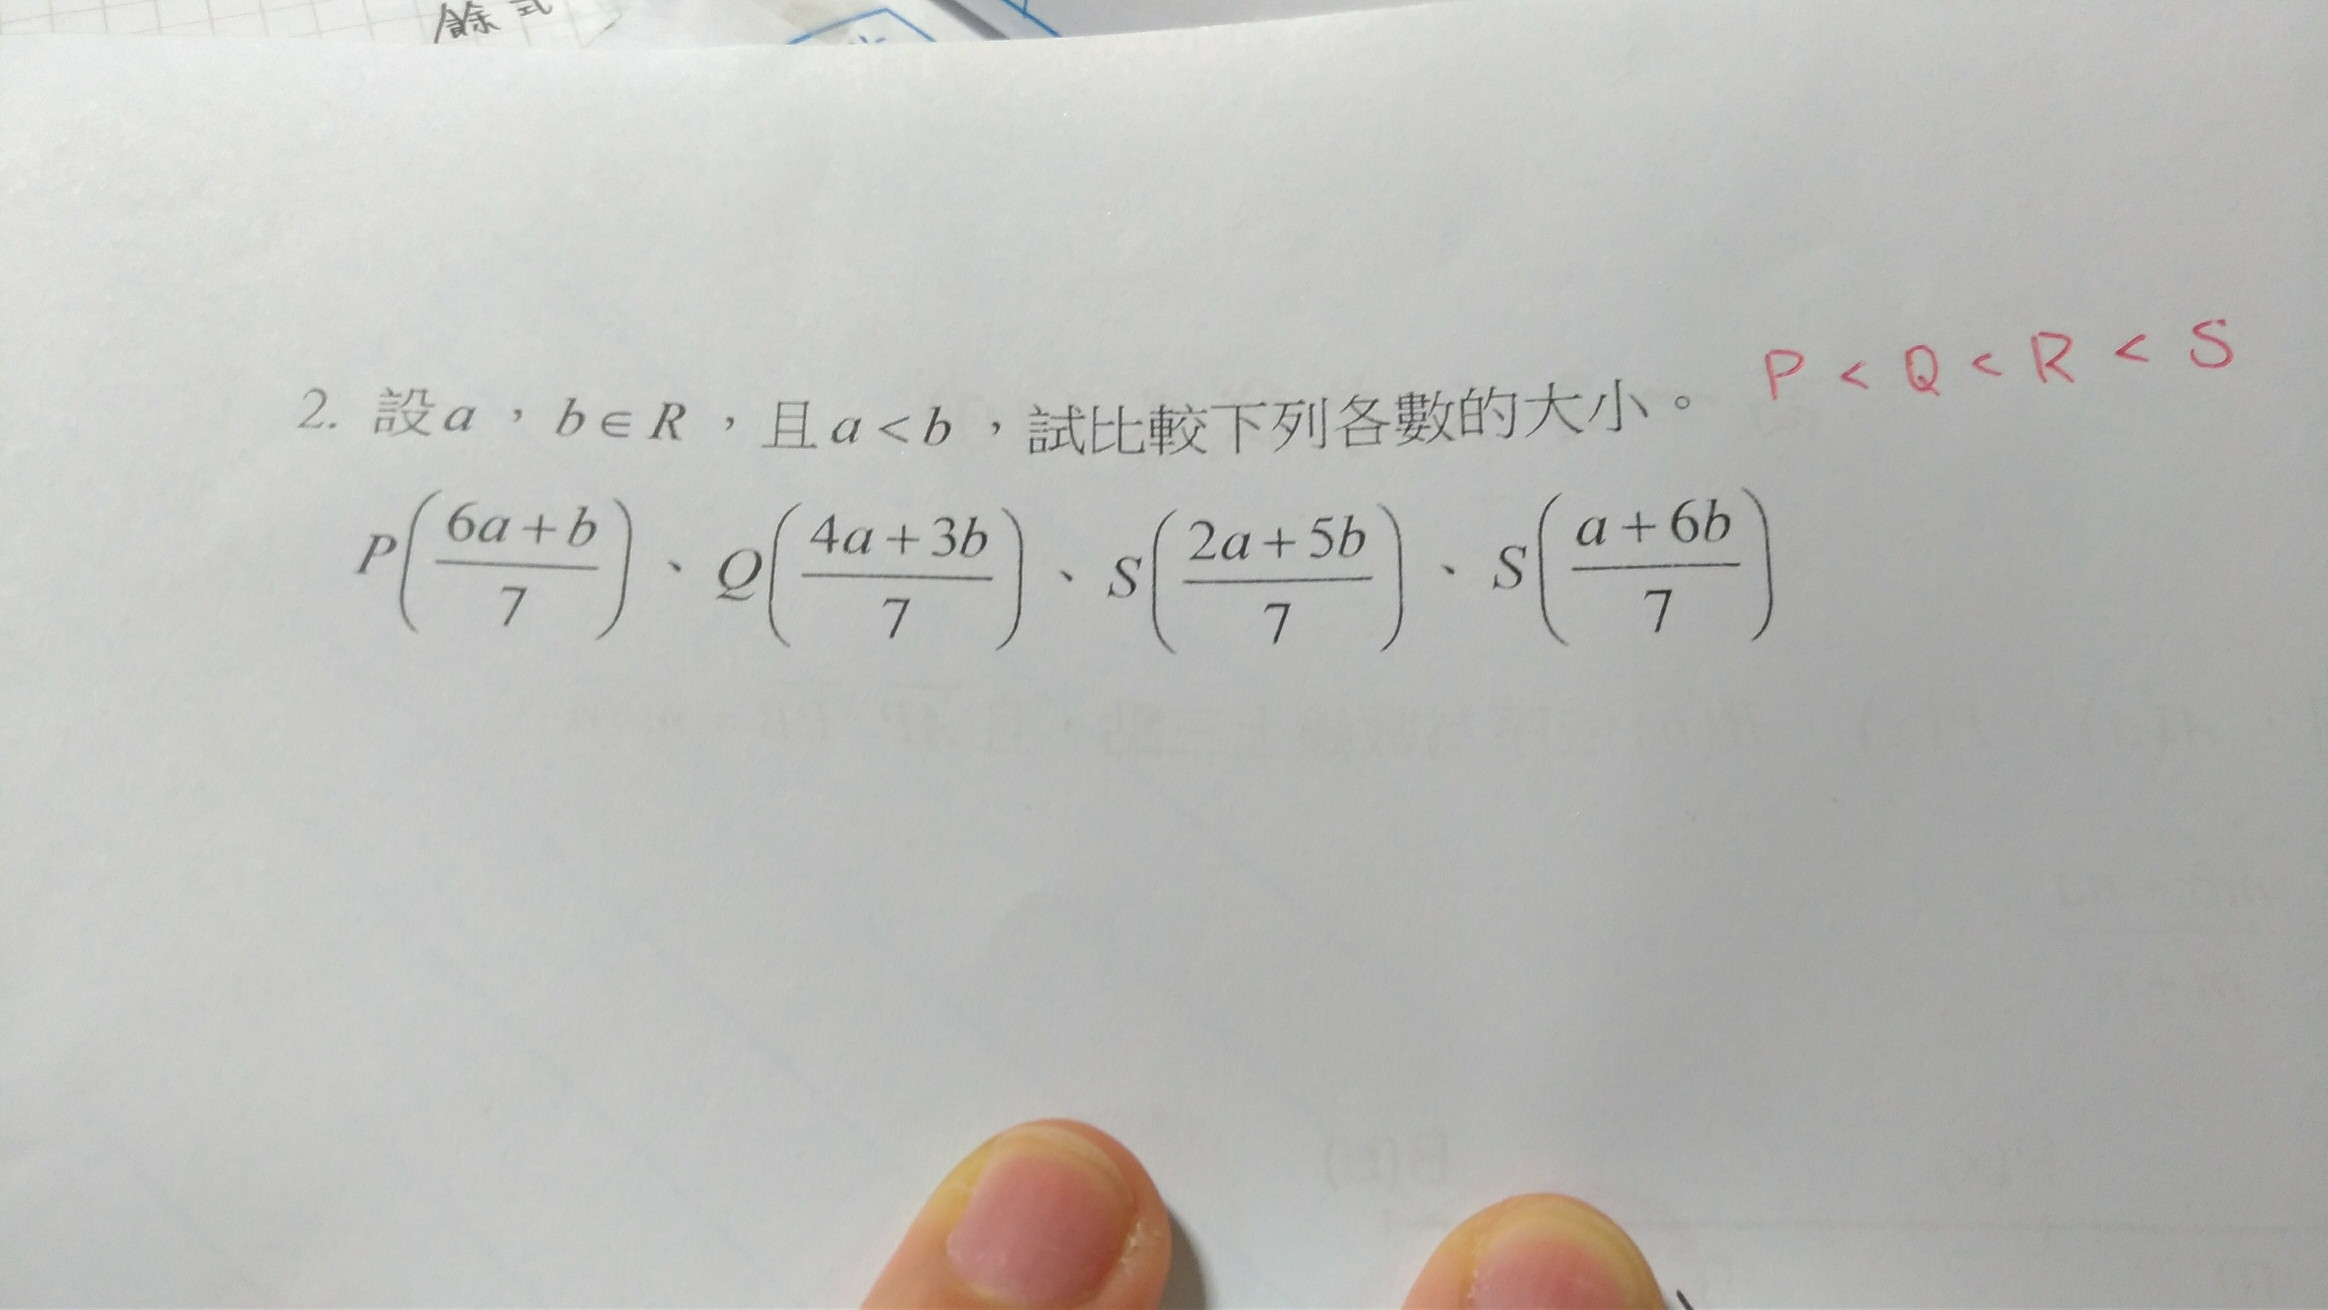 餘式
2. 設a，b∈R，且a<b，試比較下列各數的大小。 P < Q < R < S
P((6a+b)/7)、Q((4a+3b)/7)、S((2a+5b)/7)、S((a+6b)/7)